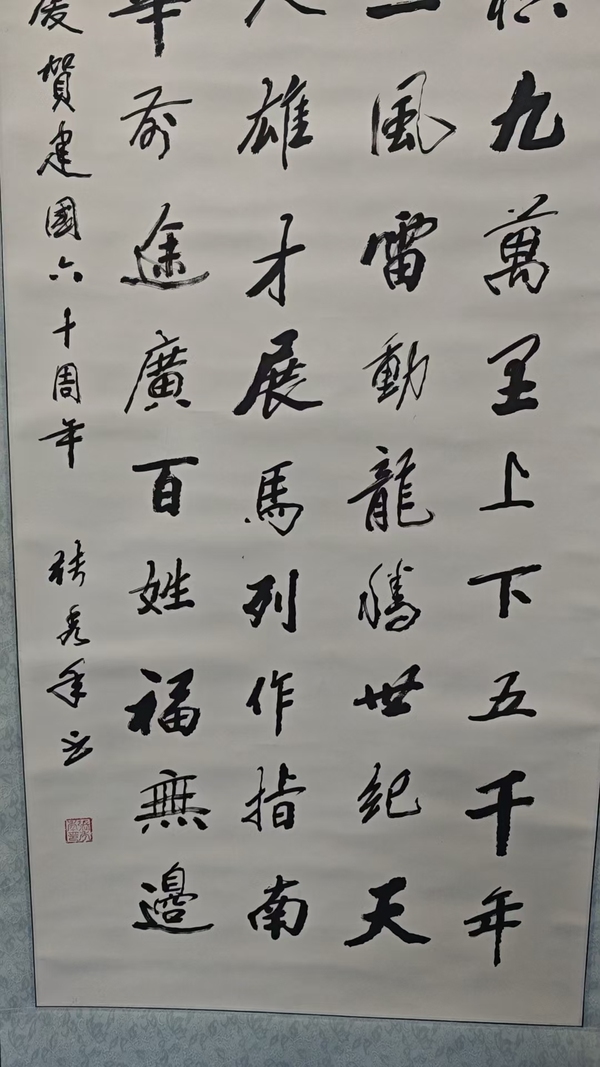 九萬里上下五千年
風雷動龍騰世紀天
雄才展馬列作指南
華前途廣百姓福無邊
慶賀建國六十周年